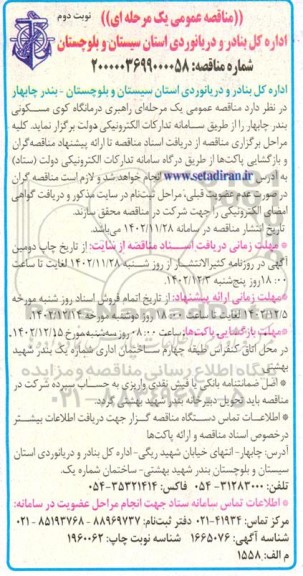 ((مناقصه عمومی یک مرحله ای))
نوبت دوم
اداره کل بنادر و دریانوردی استان سیستان و بلوچستان
شماره مناقصه: ۲۰۰۰۰۰۳۶۹۹۰۰۰۰۵۸
اداره کل بنادر و دریانوردی استان سیستان و بلوچستان - بندر چابهار
در نظر دارد مناقصه عمومی یک مرحله‌ای راهبری درمانگاه کوی مسکونی
بندر چابهار را از طریق سامانه تدارکات الکترونیکی دولت برگزار نماید. کلیه
مراحل برگزاری مناقصه از دریافت اسناد مناقصه تا ارائه پیشنهاد مناقصه‌گران
و بازگشایی پاکت‌ها از طریق درگاه سامانه تدارکات الکترونیکی دولت (ستاد)
به آدرس www.setadiran.ir انجام خواهد شد و لازم است مناقصه گران
در صورت عدم عضویت قبلی، مراحل ثبت‌نام در سایت مذکور و دریافت گواهی
امضای الکترونیکی را جهت شرکت در مناقصه محقق سازند.
تاریخ انتشار مناقصه در سامانه ۱۴۰۲/۱۱/۲۸ می‌باشد.
* مهلت زمانی دریافت اسناد مناقصه از سایت: از تاریخ چاپ دومین
آگهی در روزنامه کثیرالانتشار از روز شنبه ۱۴۰۲/۱۱/۲۸ لغایت تا ساعت
۱۸:۰۰ روز پنج‌شنبه
*مهلت زمانی ارائه پیشنهاد: از تاریخ اتمام فروش اسناد روز شنبه مورخه
لغایت تا ساعت ۱۸:۰۰ روز دوشنبه مورخه ۱۴۰۲/۱۲/۱۴
مهلت بازگشایی پاکت‌ها: ساعت ۰۸:۰۰ روز سه‌شنبه مورخ ۱۴۰۲/۱۲/۱۵
در محل اتاق کنفرانس طبقه چهارم ساختمان اداری شماره یک بندر شهید
بهشتی
* اصل ضمانتنامه بانکی یا فیش نقدی واریزی به حساب سپرده شرکت در
مناقصه باید تحویل دبیرخانه بندر شهید بهشتی گردد.
* اطلاعات تماس دستگاه مناقصه گزار جهت دریافت اطلاعات بیشتر
درخصوص اسناد مناقصه و ارائه پاکت‌ها
آدرس: چابهار- انتهای خیابان شهید ریگی- اداره کل بنادر و دریانوردی استان
سیستان و بلوچستان بندر شهید بهشتی- ساختمان شماره یک
تلفن: ۳۱۲۸۳۰۰۰-۰۵۴ فاکس: ۳۵۳۲۱۴۱۴-۰۵۴
* اطلاعات تماس سامانه ستاد جهت انجام مراحل عضویت در سامانه:
مرکز تماس: ۴۱۹۳۴-۰۲۱ دفتر ثبت‌نام: ۸۸۹۶۹۷۳۷ - ۸۵۱۹۳۷۶۸-۰۲۱
شناسه آگهی: ۱۶۶۵۰۷۶ شناسه نوبت چاپ: ۱۹۶۰۰۶۲
م الف: ۱۵۵۸